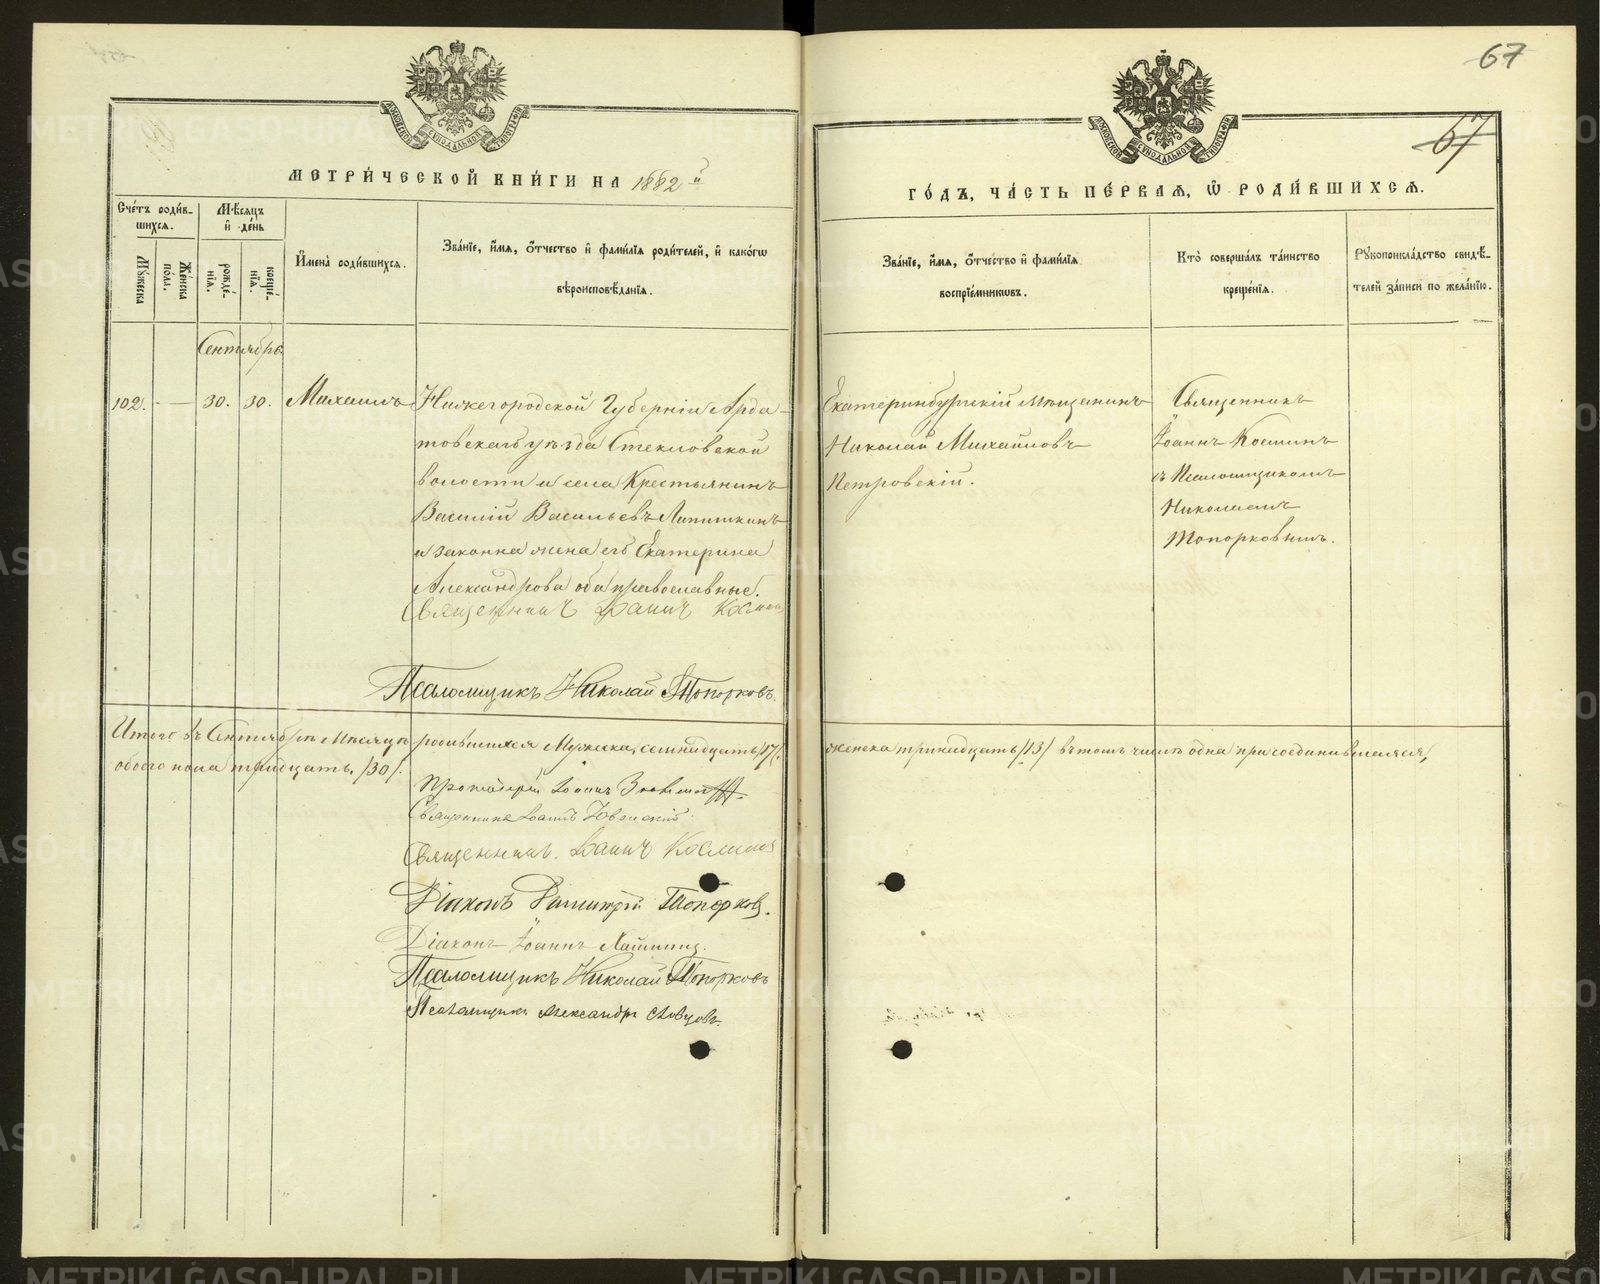 67
67
МОСКОВСКОЙ СѴНОДАЛЬНОЙ ТИПОГРАФІИ
МОСКОВСКОЙ СѴНОДАЛЬНОЙ ТИПОГРАФІИ
МЕТРИ́ЧЕСКОЙ КНИ́ГИ НА 1882 й
ГО́ДЪ, ЧА́СТЬ ПЕ́РВАЯ, Ѡ РОДИ́ВШИХСЯ.
Сче́тъ роди́в-
шихся.
Мꙋжеска
Же́нска
по́ла.
Мѣ́сяцъ
и де́нь
рожде́-
нїя.
креще́-
нїя.
Имена̀ роди́вшихся.
Зва́нїе, и́мя, о́тчество и фами́лїя роди́телей, и како́гѡ
вѣроисповѣ́данїя.
Зва́нїе, и́мя, о́тчество и фами́лїя
воспрїе́мникѡвъ.
Кто̀ соверша́лъ та́инство
креще́нїя.
Рꙋкоприкла́дство свидѣ́-
телей за́писи по жела́нїю.
Сентябрь
102. - — 30. 30. Михаилъ
Нижегородской Губерніи Арда-
товскаго уѣзда Стекловской
волости и села Крестьянинъ
Василій Васильевъ Лапишкинъ
и законна жена его Екатерина
Александрова оба православные.
Священникъ Іоаннъ Космин
Псаломщикъ Николай Топорковъ.
Екатеринбургскій мѣщанинъ
Николай Михайловъ
Петровскій.
Священникъ
Іоаннъ Косминъ
съ Псаломщикомъ
Николаемъ
Топорковымъ.
Итого въ Сентябрѣ мѣсяцѣ родившихся Мужеска, семнадцать /17/. женска тринадцать /13/ въ томъ числѣ одна присоединившаяся,
обоего пола тридцать. /30/.
Протоіерей Іоаннъ
Священникъ Іоаннъ
Священникъ. Іоаннъ Косминъ
Діаконъ Димитрій Топорковъ.
Діаконъ Іоаннъ
Псаломщикъ Николай Топорковъ
Псаломщикъ Александръ Словцовъ.
METRIKI.GASO-URAL.RU